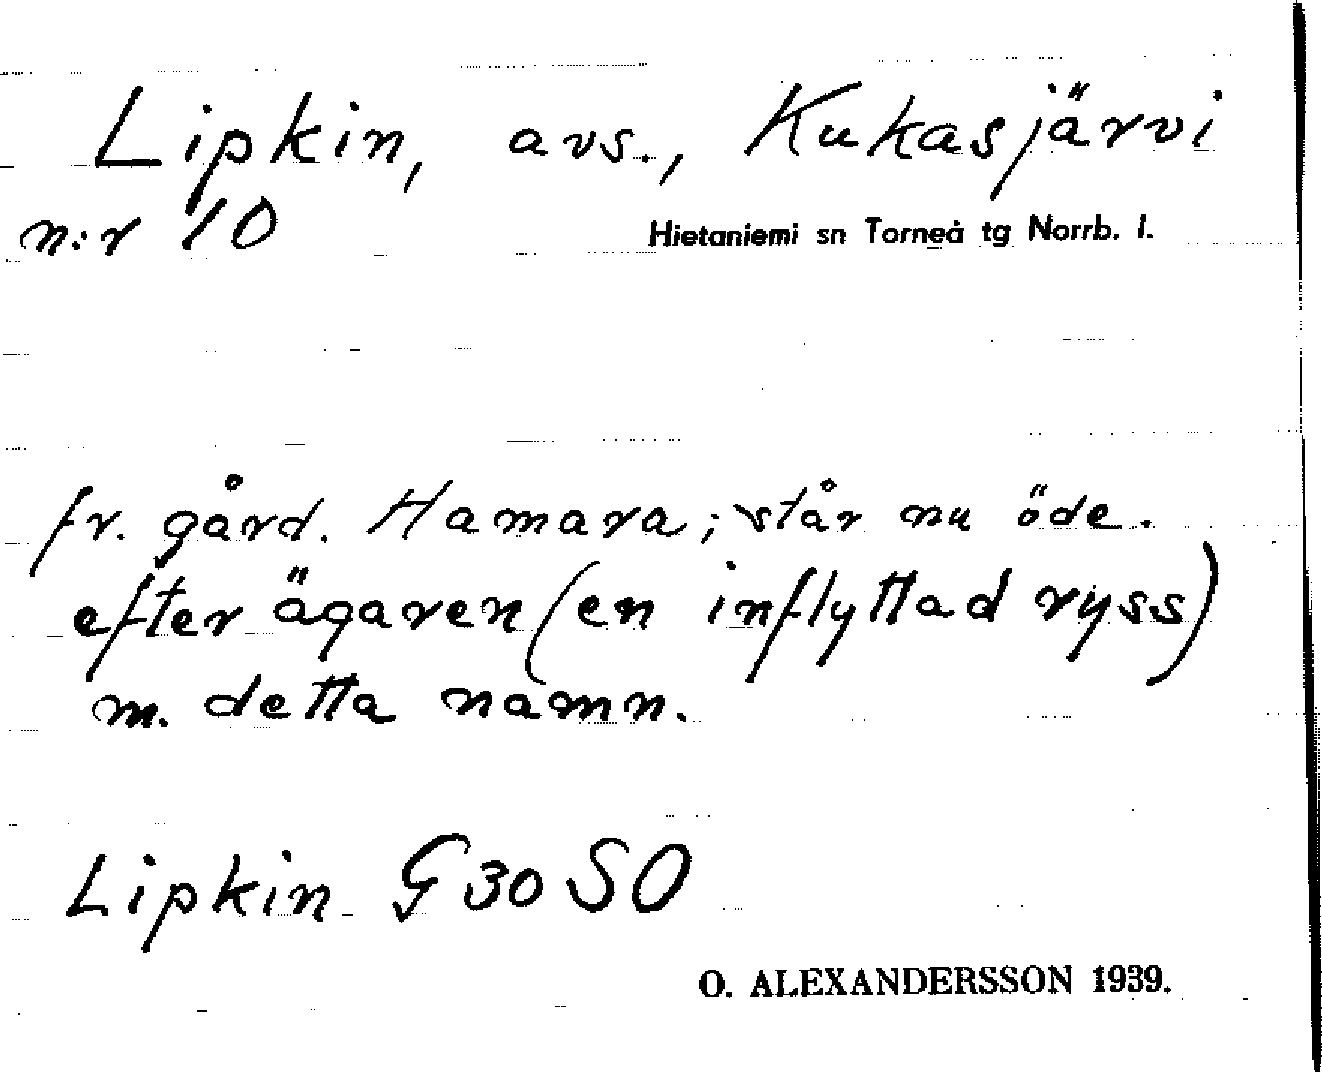 Lipkin, avs., Kukasjärvi
n:r 10
Hietaniemi sn Torneå tg Norrb. l.
fr. gård. Hamara; står nu öde.
efter ägaren (en inflyttad ryss)
m. detta namn.
Lipkin G 30 SO
O. ALEXANDERSSON 1939.